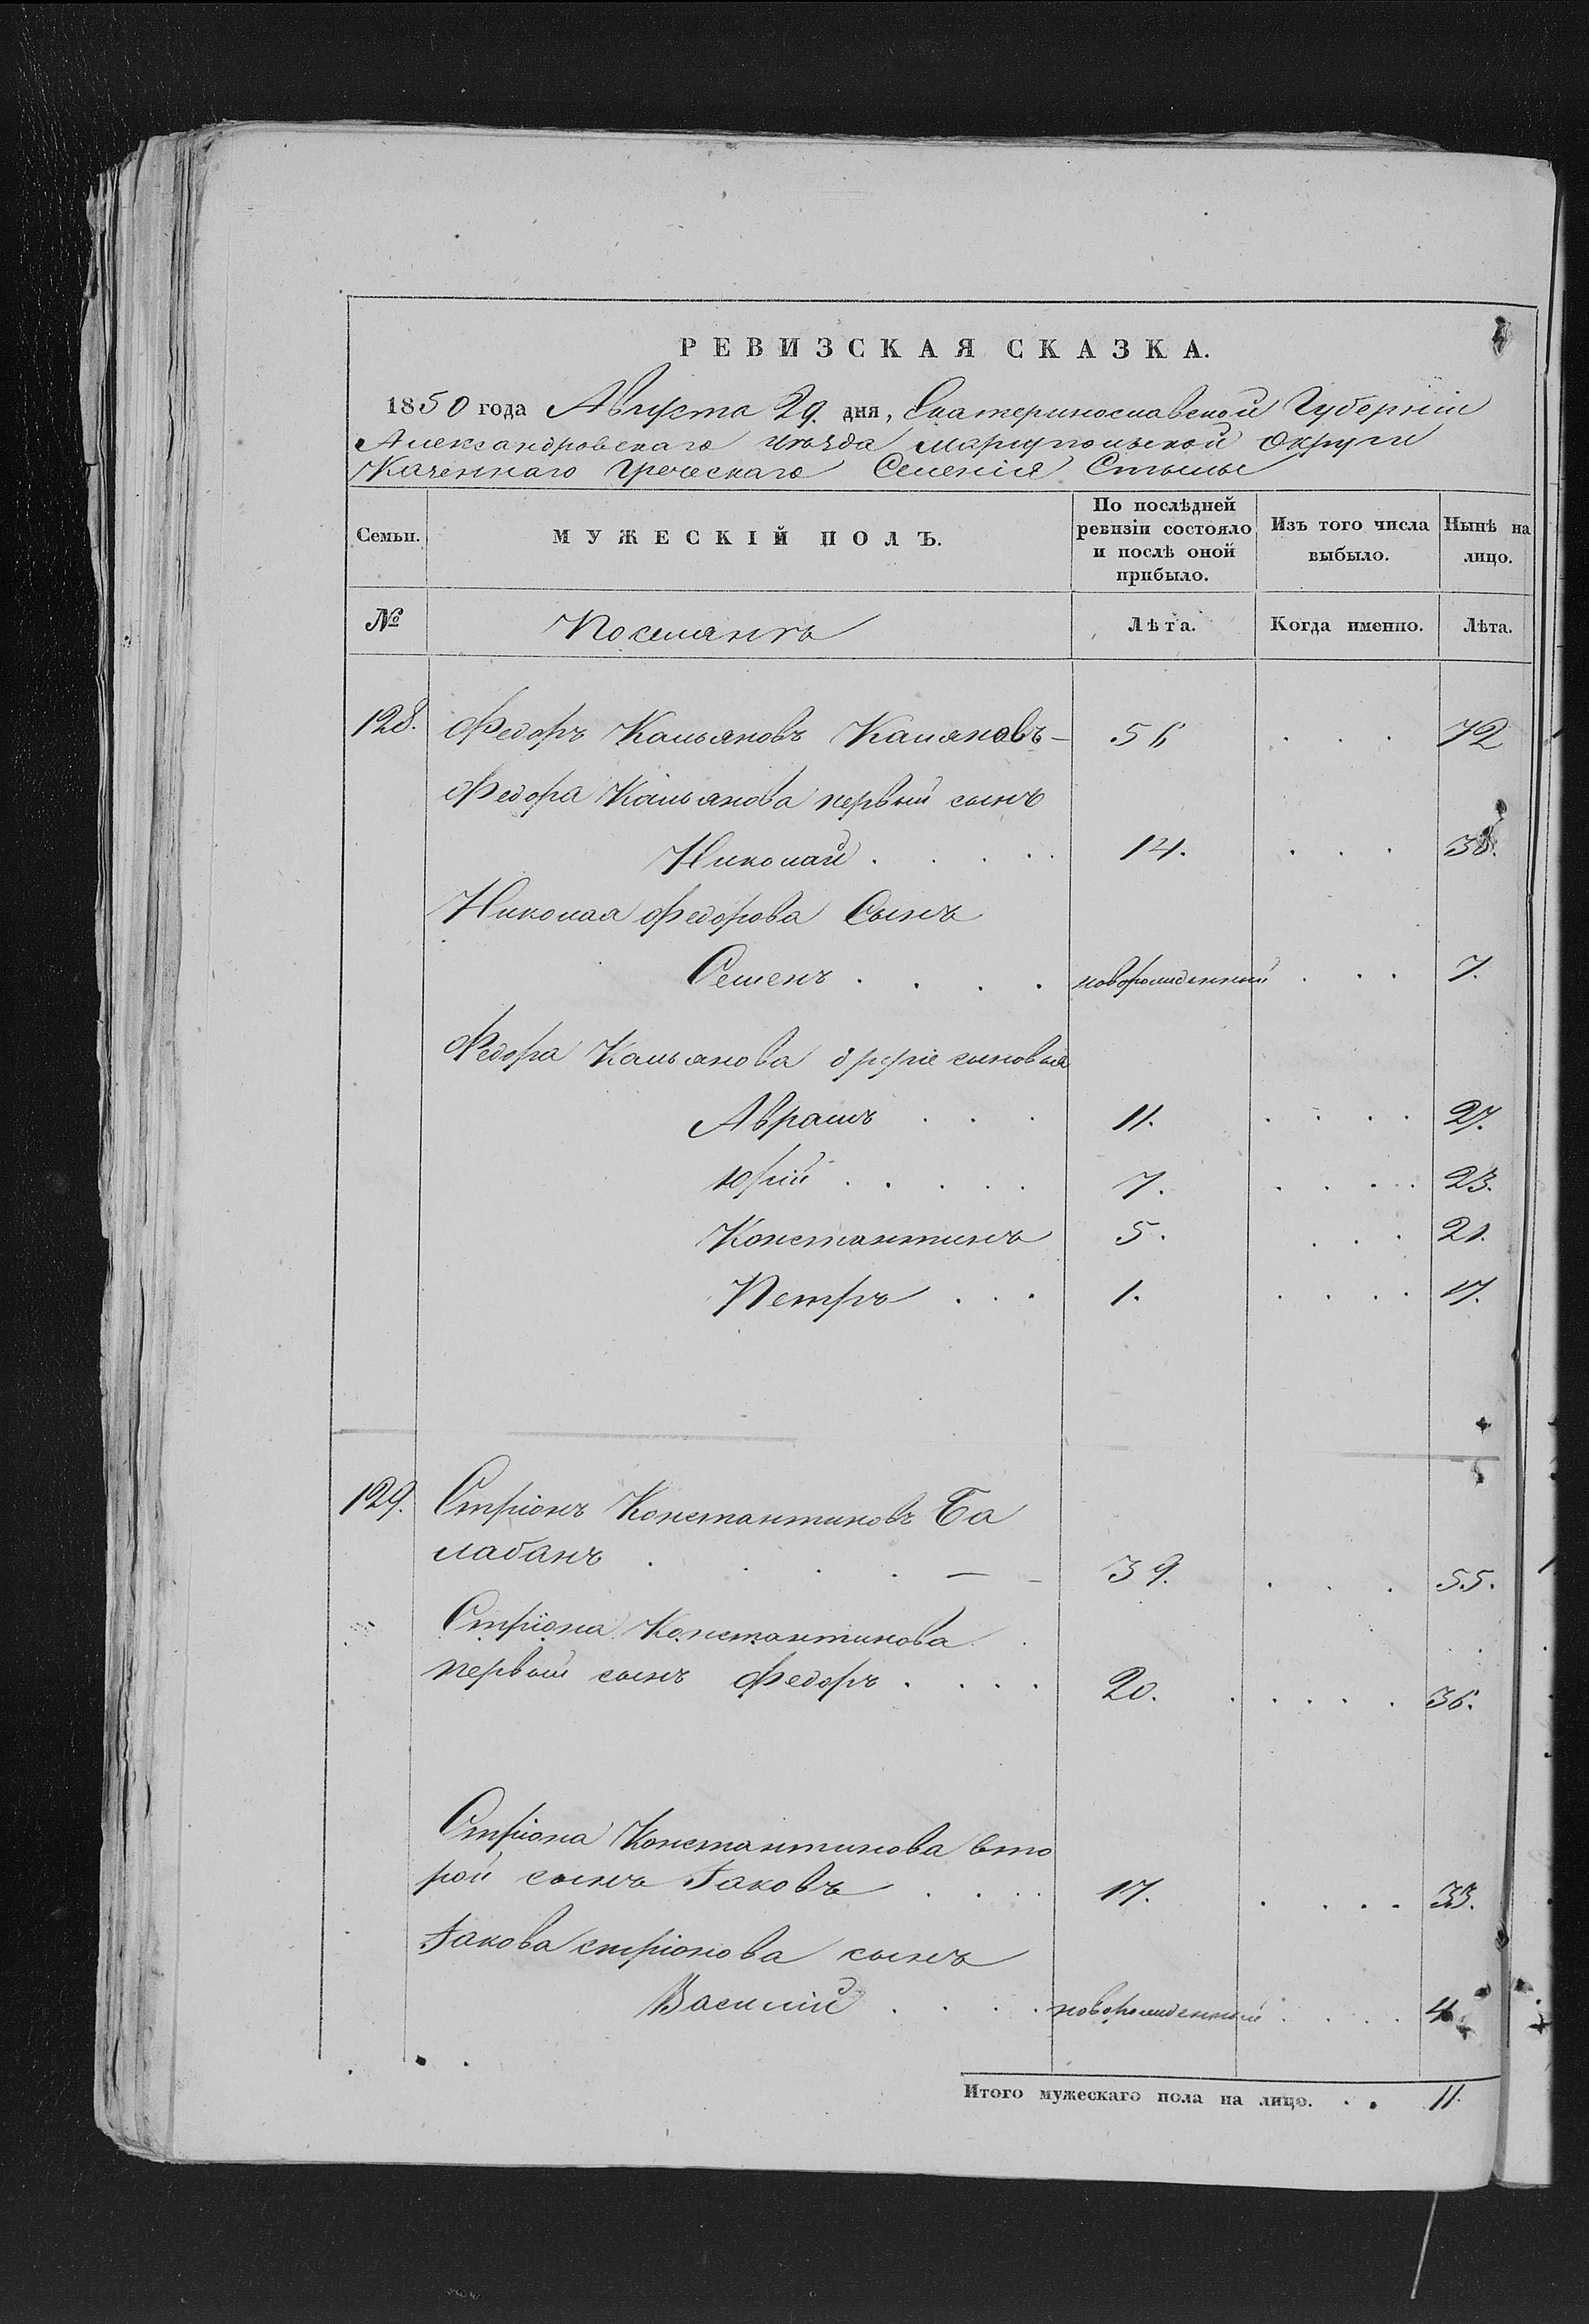 РЕВИЗСКАЯ СКАЗКА.
1850 года Августа 29. дня, Екатеринославской Губерніи
Александровскаго уѣзда Маріупольской округи
Казеннаго Греческаго Селенія Стылы
Семьи. МУЖЕСКІЙ ПОЛЪ. По послѣдней ревизіи состояло и послѣ оной прибыло. Изъ того числа выбыло. Нынѣ на лицо.
№ Поселянъ Лѣта. Когда именно. Лѣта.
128. Федоръ Кальяновъ Каляновъ - 56 . . . 72
Федора Кальянова первый сынъ
Николай . . . . . 14. . . . 30.
Николая Федорова Сынъ
Семенъ . . . . новорожденный . . . 7.
Федора Кальянова другіе сыновья
Аврамъ . . . 11. . . . . 27.
Юрій . . . . . 7. . . . . 23.
Константинъ 5. . . . 21.
Петръ . . . 1. . . . . 17.
129. Стріонъ Константиновъ Ба
лабанъ . . . . — - 39. . . . 55.
Стріона Константинова
первый сынъ Федоръ . . . . 20. . . . . . 36.
Стріона Константинова вто
рой сынъ Іаковъ . . . . 17. . . . . 33.
Іакова Стріонова сынъ
Василій . . . . новорожденный . . . . 4
Итого мужескаго пола на лицо. . . 11.